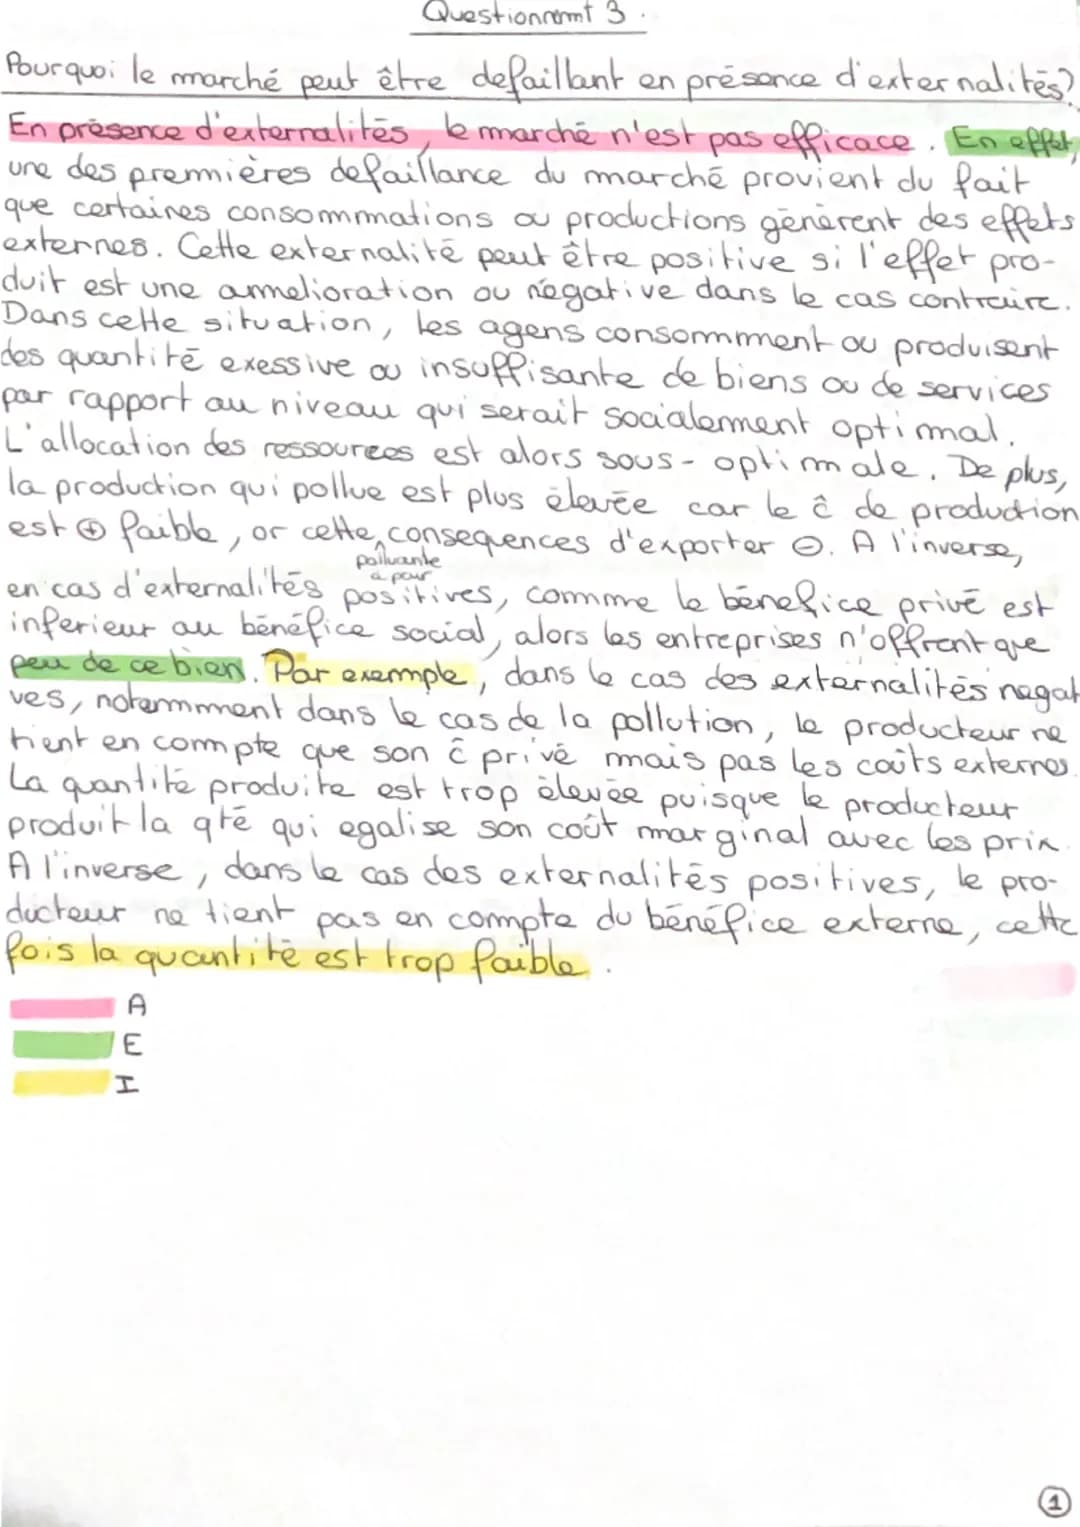 Questionnemt 3.
Pourquoi le marché peut être defaillant en présence d'externalités?
En présence d'externalités, le marché n'est pas efficace. En effet,
une des premières defaillance du marché provient du fait
que certaines consommations ou productions génèrent des effets
externes. Cette externalité peut être positive si l'effet pro-
duit est une amelioration ou négative dans le cas contraire.
Dans cette situation, les agens consomment ou produisent
des quantité exessive ou insuffisante de biens ou de services
par rapport au niveau qui serait socialement optimal.
L'allocation des ressources est alors sous-optimale. De plus,
la production qui pollue est plus élevée car le ĉ de production
est ⊕ faible, or cette consequences d'exporter ⊖. A l'inverse,
polluante
a pour
en cas d'externalités positives, comme le bénéfice privé est
inferieur au bénéfice social, alors les entreprises n'offrent que
peu de ce bien. Par exemple, dans le cas des externalités negat
ves, notemment dans le cas de la pollution, le producteur ne
tient en compte que son ĉ privé mais pas les coûts externes.
La quantité produite est trop élevée puisque le producteur
produit la qté qui egalise son coût marginal avec les prix.
A l'inverse, dans le cas des externalités positives, le pro-
ducteur ne tient pas en compte du bénéfice externe, cette
fois la quantité est trop faible.
A
E
I
1